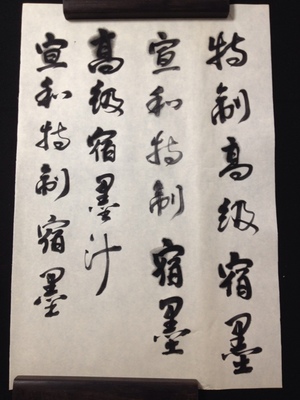 特制高级宿墨
宣和特制宿墨
高级宿墨汁
宣和特制宿墨